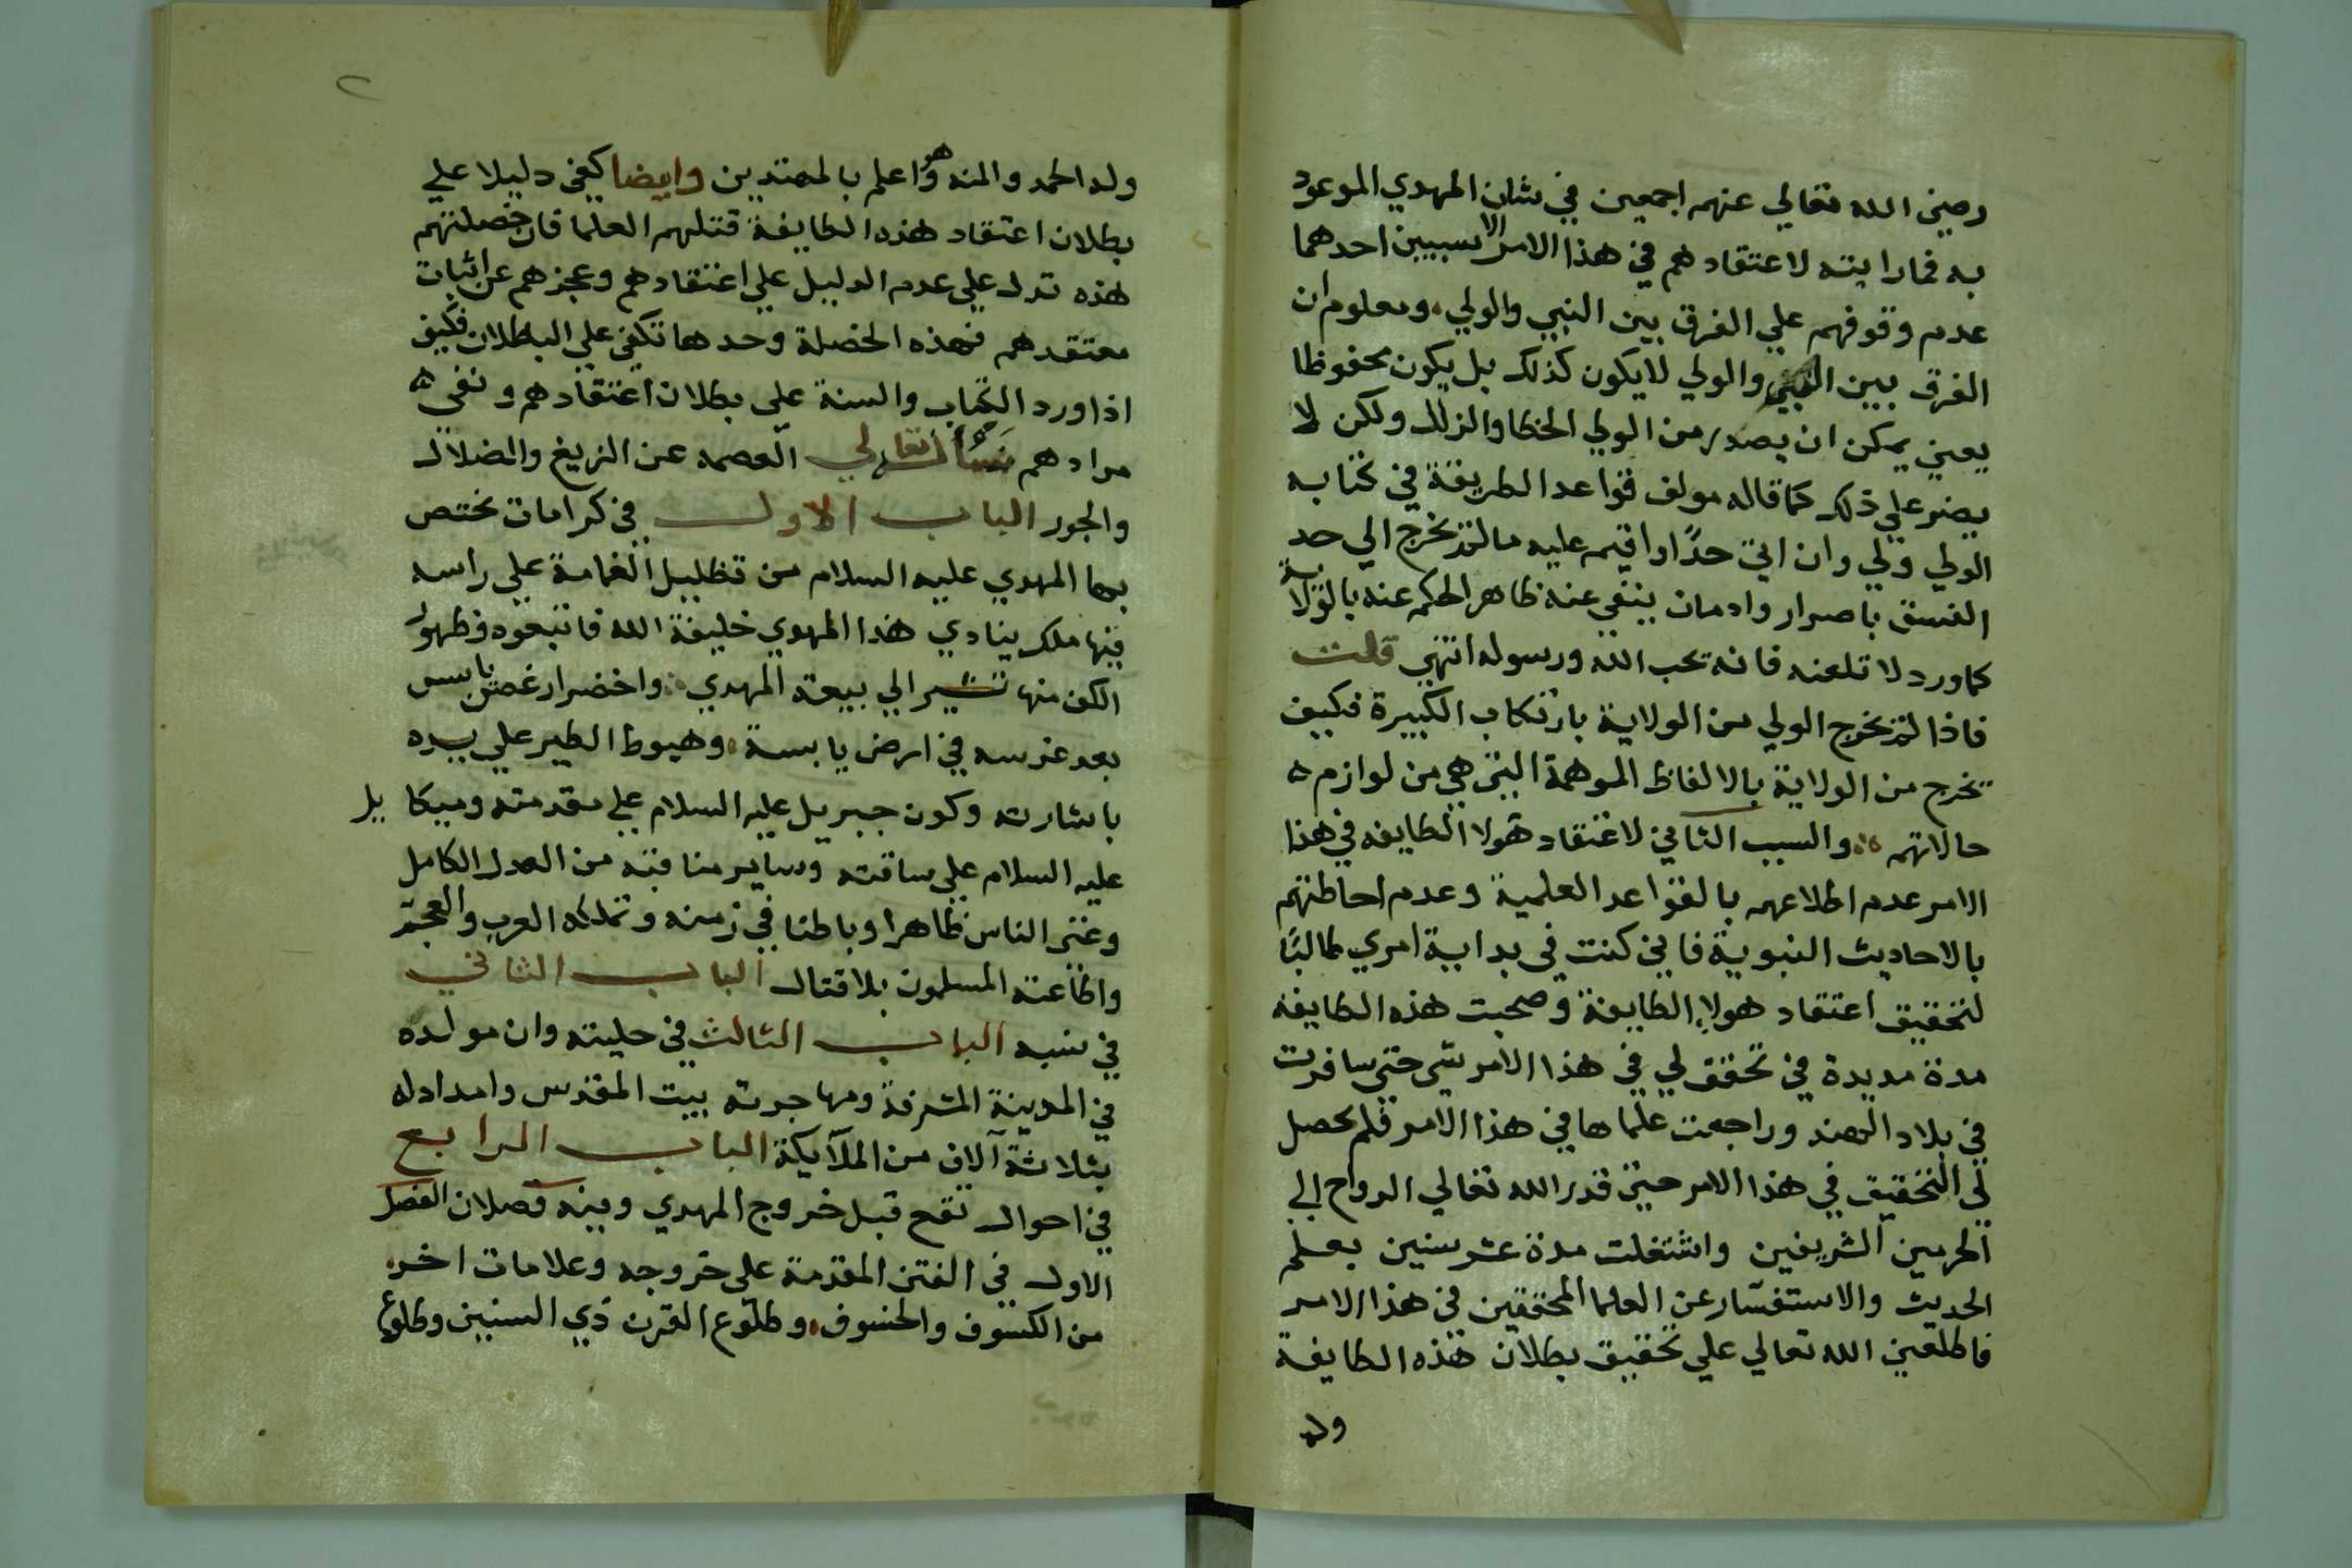 رضي الله تعالي عنهم اجمعين في شان المهدي الموعود
به فما رايته لاعتقادهم في هذا الامر الا لسببين احدهما
عدم وقوفهم علي الفرق بين النبي والولي ومعلوم ان
الفرق بين النبي والولي لا يكون كذلك بل يكون محفوظا
يعني يمكن ان يصدر من الولي الخطا والزلل ولكن لا
يصر علي ذلك كما قاله مولف قواعد الطريقة في كتابه
الولي ولي وان اتي حدًا او اقيم عليه ما لم يخرج الي حد
الفسق باصرار وادمان ينفي عنه ظاهر الحكم عنه بالولاية
كما ورد لا تلعنه فانه يحب الله ورسوله انتهي قلت
فاذا لم يخرج الولي من الولاية بارتكاب الكبيرة فكيف
يخرج من الولاية بالالفاظ الموهمة التي هي من لوازم ه
حالاتهم والسبب الثاني لاعتقاد هولا الطايفه في هذا
الامر عدم اطلاعهم بالقواعد العلمية وعدم احاطتهم
بالاحاديث النبوية فاني كنت في بداية امري طالبًا
لتحقيق اعتقاد هولاء الطايفة وصحبت هذه الطايفه
مدة مديدة في تحقق لي في هذا الامر شي حتي سافرت
في بلاد الهند وراجعت علماها في هذا الامر فلم يحصل
لي التحقيق في هذا الامر حتي قدر الله تعالي الرواح الي
الحرمين الشريفين واشتغلت مدة عشر سنين بعلم
الحديث والاستفسار عن العلما المحققين في هذا الامر
فاطلعني الله تعالي علي تحقيق بطلان هذه الطايفة
وله
٢
وله الحمد والمنه وهو اعلم بالمهتدين وايضا كفي دليلا علي
بطلان اعتقاد هذه الطايفة قتلهم العلما فان خصلتهم
هذه تدل علي عدم الدليل علي اعتقادهم وعجزهم عن اثبات
معتقدهم فهذه الخصلة وحدها تكفي علي البطلان فكيف
اذا ورد الكتاب والسنة علي بطلان اعتقادهم ونفي ه
مرادهم نسال الله تعالي العصمه عن الزيغ والضلال
والجور الباب الاول في كرامات يختص
بها المهدي عليه السلام من تظليل الغمامة علي راسه
فيها ملك ينادي هذا المهدي خليفة الله فاتبعوه وظهور
الكف منها تشير الي بيعة المهدي واخضرار غصن يابس
بعد غرسه في ارض يابسة وهبوط الطير علي يده
باشارته وكون جبريل عليه السلام علي مقدمته وميكا يل
عليه السلام علي ساقته وساير مناقبه من العدل الكامل
وغني الناس ظاهرا وباطنا في زمنه وتملكه العرب والعجم
واطاعته المسلمون بلا قتال الباب الثاني
في نسبه الباب الثالث في حليته وان مولده
في المدينة المشرفة ومهاجرته بيت المقدس وامداد له
بثلاثة آلاف من الملآيكة الباب الرابع
في احوال تقع قبل خروج المهدي وفيه فصلان الفصل
الاول في الفتن المقدمة علي خروجه وعلامات اخر
من الكسوف والخسوف وطلوع القرن ذي السنين وطلوع